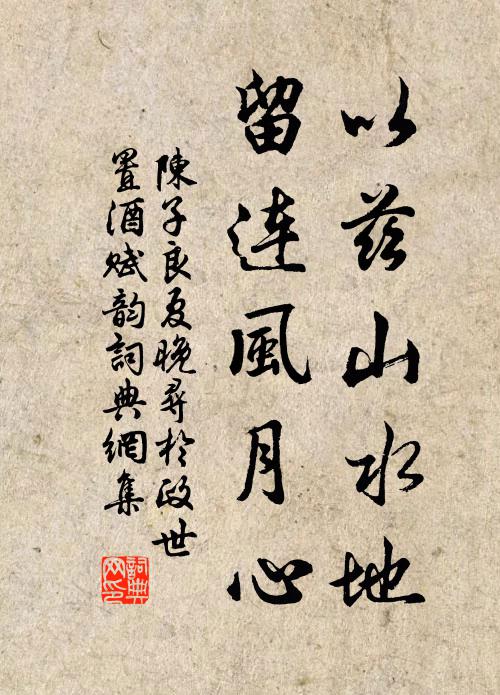 以茲山水地
留連風月心
陳子良夏晚尋於政世
置酒賦韵詞典網集
詞典
网印